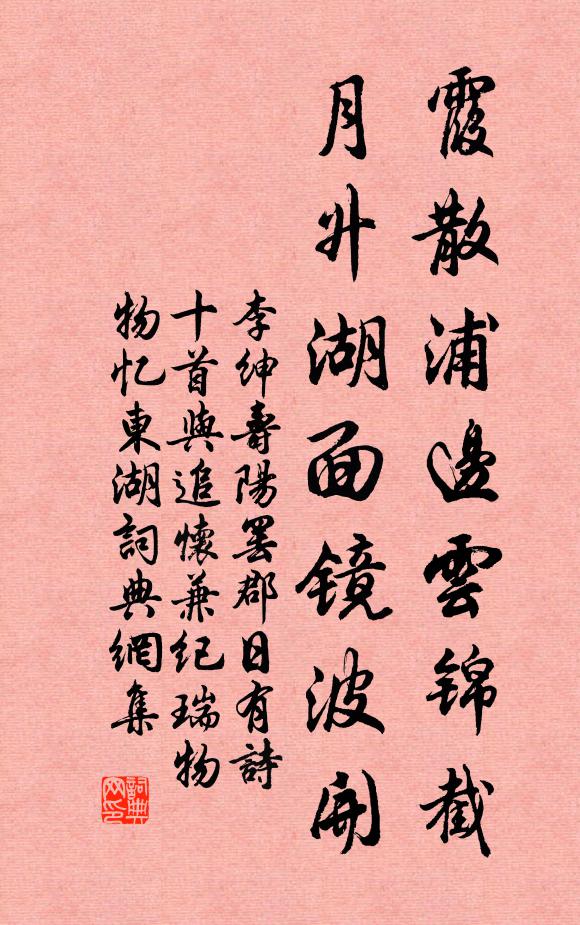 霞散浦邊雲錦截
月升湖面镜波開
李紳壽陽罢郡日有詩
十首與追懷兼紀瑞物
物忆東湖詞典網集
詞典网印